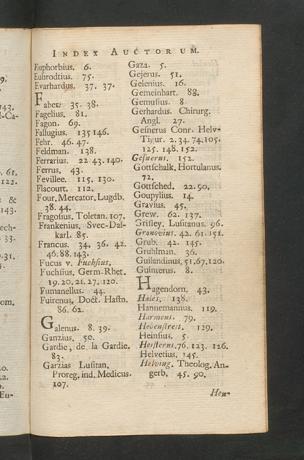 INDEX AUCTORUM.
Euphorbius. 6.
Eustrodtius. 75.
Evarhardus. 37. 37.
Faber. 35. 38.
Fagelius. 81.
Fagon. 69.
Fallugius. 135 146.
Fehr. 46. 47.
Feldman. 138.
Ferrarius. 22. 43. 140.
Ferrus, 43.
Fevillee. 115. 130.
Flacourt. 112.
Four, Mercator, Lugdb.
38. 44.
Fragosus, Toletan. 107.
Frankenius, Svec-Dal-
karl. 85.
Francus. 34. 36. 42.
46. 88. 143.
Fucus v. Fuchsius,
Fuchsius, Germ-Rhet.
19. 20. 21. 27. 120.
Fumanellus. 44.
Fuirenus, Doct. Hafn.
86. 62.
Galenus. 8. 39.
Ganzius. 50.
Gardie, de la Gardie,
83.
Garzias Lusitan.
Proreg, ind. Medicus.
107.
Gaza. 5.
Gejerus. 51.
Gelenius. 16.
Gemeinhart. 88.
Gemusius. 8
Gerhardus Chirurg.
Angl. 27.
Gesnerus Conr. Helv-
Tigur. 2. 34. 74. 105.
125. 148. 152.
Gesnerus. 152.
Gottschalk, Hortulanus.
72.
Gottsched. 22. 90.
Goupylius. 14.
Gravius. 45.
Grew. 62. 137.
Grisley, Lusitanus. 96.
Gronovius. 42. 61. 151.
Grub. 42. 145.
Gruhlman. 36.
Guilandinus, 51. 67. 120.
Guinterus. 8.
Hagendorn. 43.
Hales. 138.
Hannemannus. 119.
Harmens. 79.
Hebenstreit. 129.
Heinsius. 5.
Heisterus. 76. 123. 126.
Helvetius. 145.
Helwing. Theolog. An-
gerb. 45. 90.